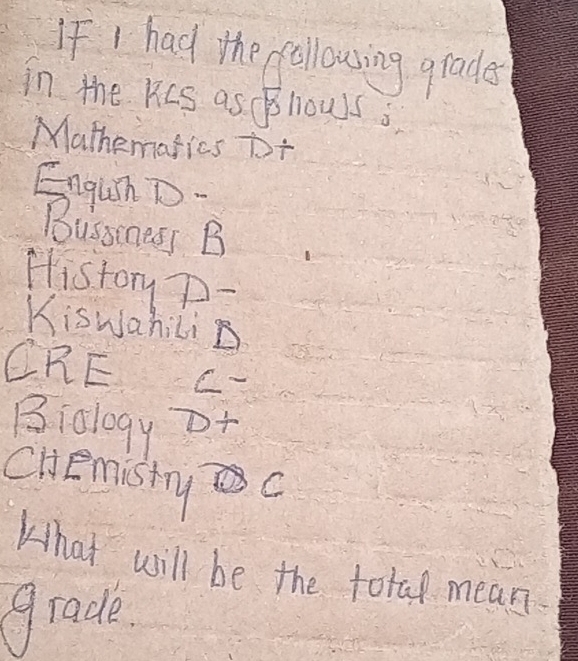 IF I had the following grades
in the KCS as follows;
Mathematics D+
English D-
Bussiness B
History D-
Kiswahili D
CRE C-
Biology D+
CHEmistry C
What will be the total mean
grade.